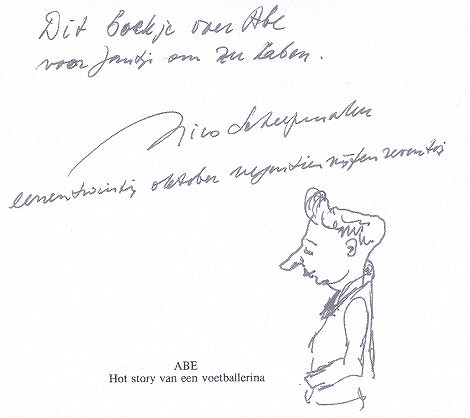 Dit boekje over Abe
voor Jantje om zu haben.
Nico Scheepmaker
eenentwintig oktober negentien vijfenzeventig
ABE
Hot story van een voetballerina